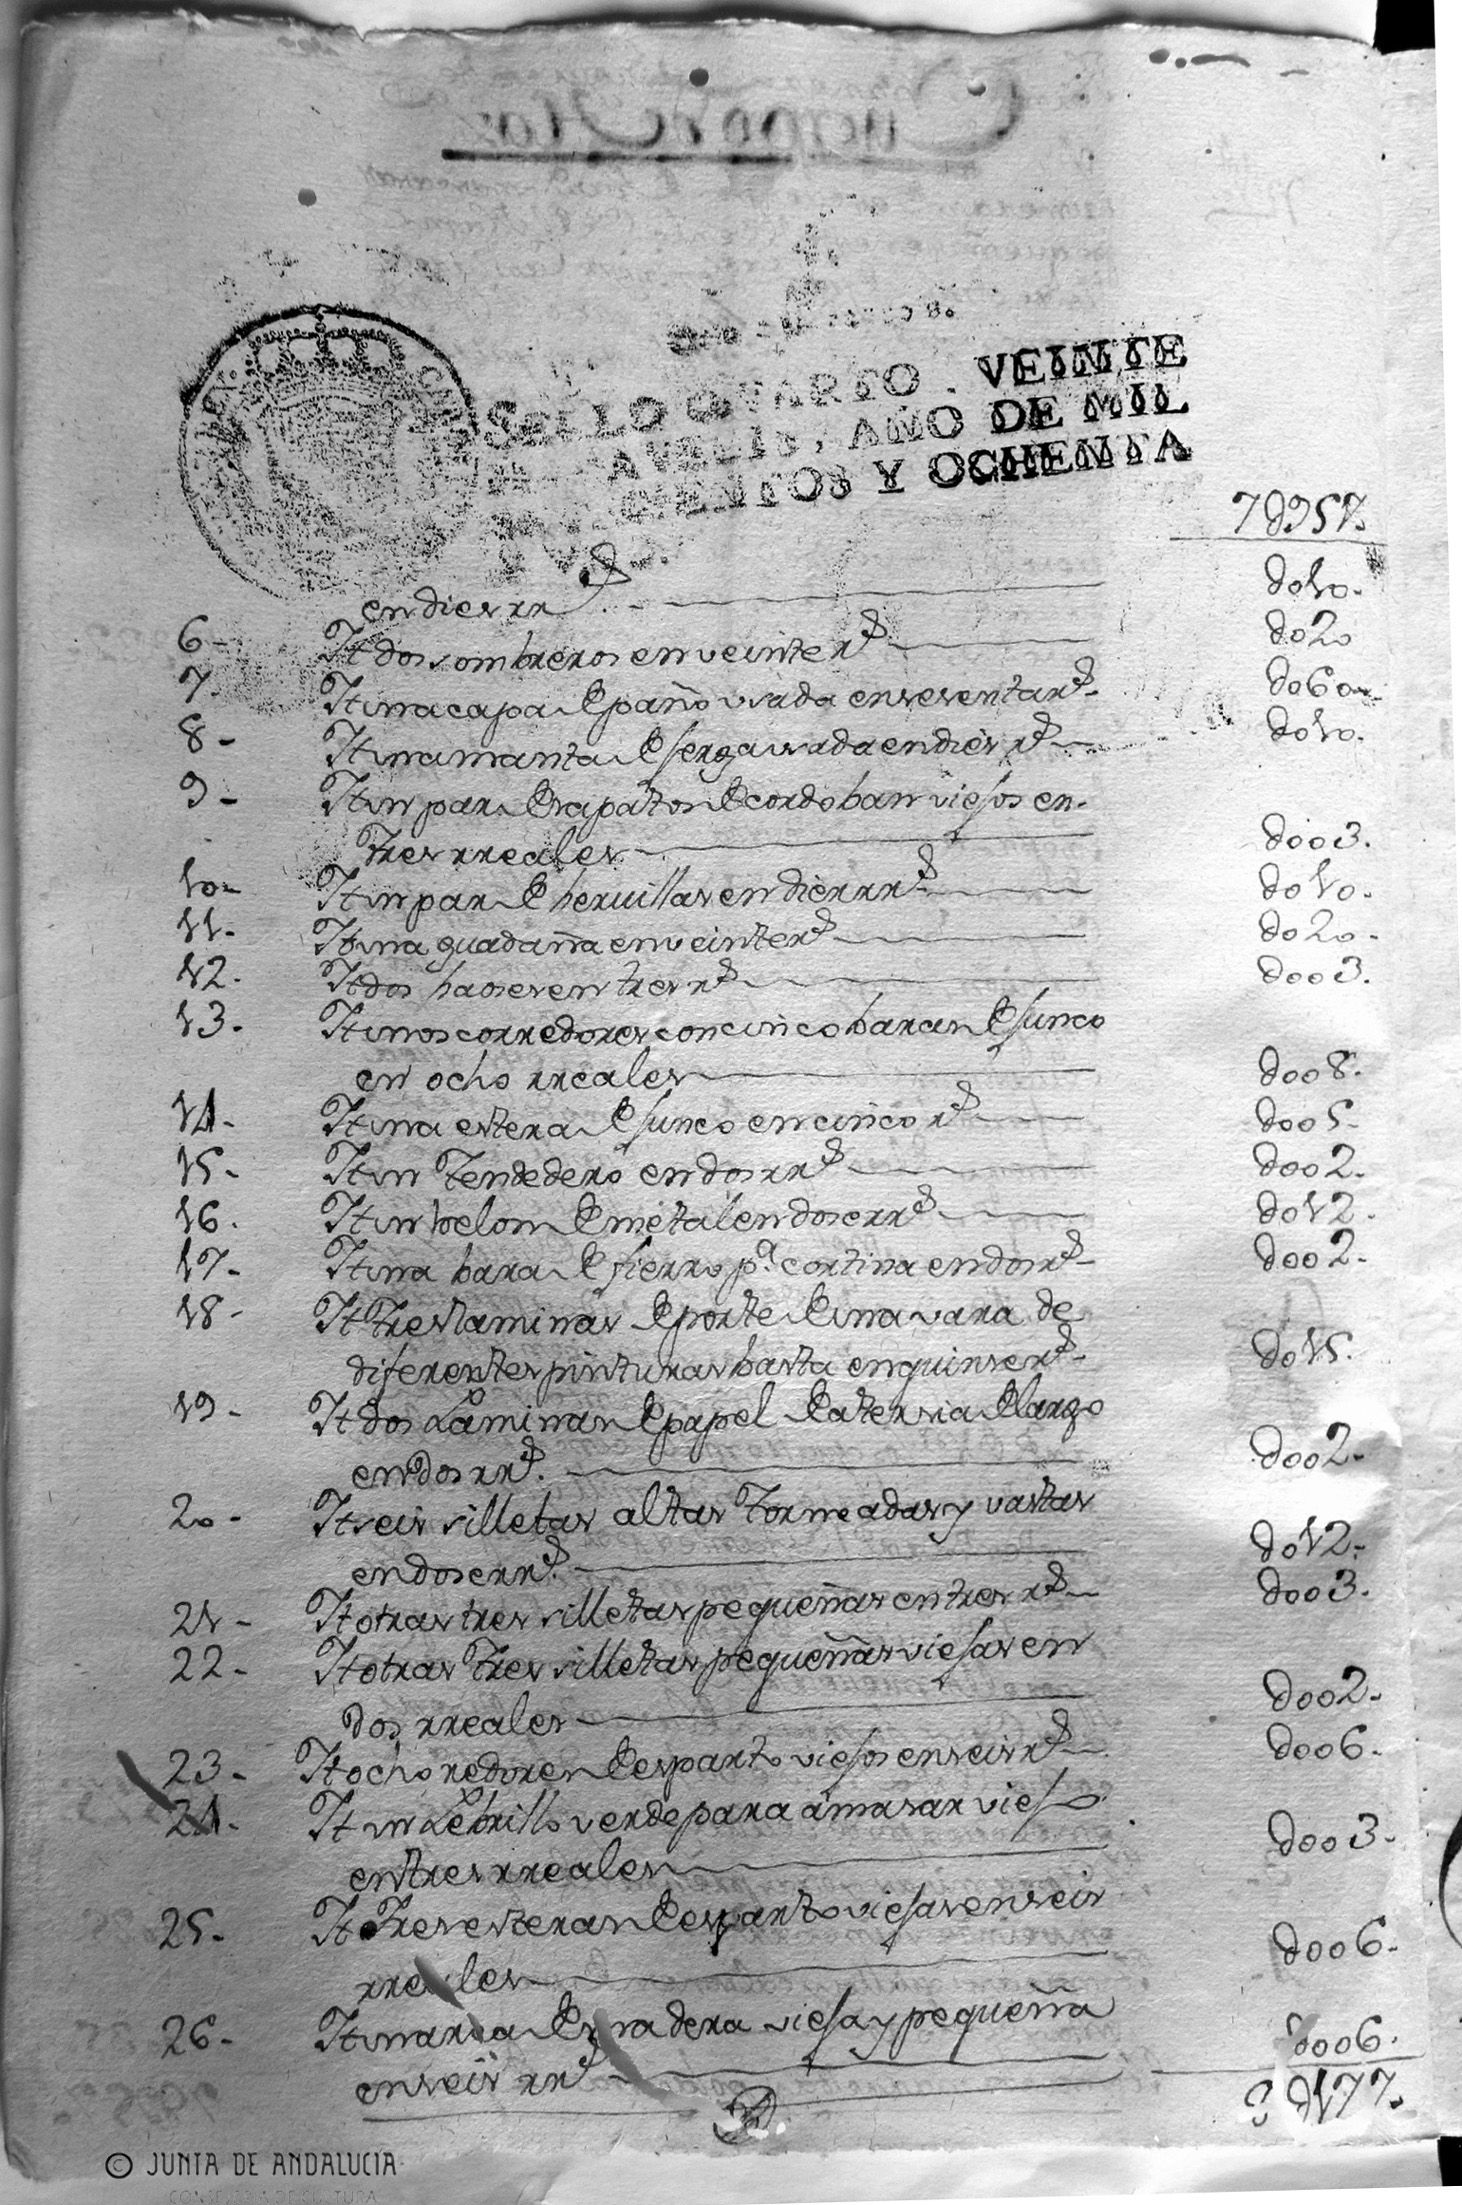 SELLO QVARTO. VEINTE
MARAVEDIS, AÑO DE MIL
SETECIENTOS Y OCHENTA
Y VNO.
7U957.
en dies rr.s U010.
6- It dos sombreros en veinte r.s U020
7. It una capa de paño usada en sesenta r.s U060
8- It una manta de serga usada en dies r.s U010.
9- It un par de sapatos de cordoban viejos en
tres rreales U003.
10- It un par de hevillas en dies rr.s U010.
11. It una guadaña en veinte r.s U020.
12. It dos hoses en tres r.s U003.
13. It unos corredores con cinco baras de junco
en ocho rreales U008.
14. It una estera de junco en cinco r.s U005.
15- It un tendedero en dos rr.s U002.
16. It un belon de metal en dose rr.s U012.
17- It una bara de fierro p.a cortina en dos r.s U002.
18- It tres laminas de porte de una vara de
diferentes pinturas basta en quinse r.s U015.
19- It dos laminas de papel de a tersia de largo
en dos rr.s U002.
20- It seis silletas altas torneadas y vastas
en dose rr.s U012.
21- It otras tres silletas pequeñas en tres r.s U003.
22- It otras tres silletas pequeñas viejas en
dos rreales U002.
23- It ocho redores de esparto viejos en seis r.s U006.
24. It un lebrillo verde para amasar viejo
en tres rreales U003.
25. It tres esteras de esparto viejas en seis
rreales U006.
26- It una arca de madera vieja y pequeña
en seis rr.s U006.
8U177.
© JUNTA DE ANDALUCIA
CONSEJERIA DE CULTURA